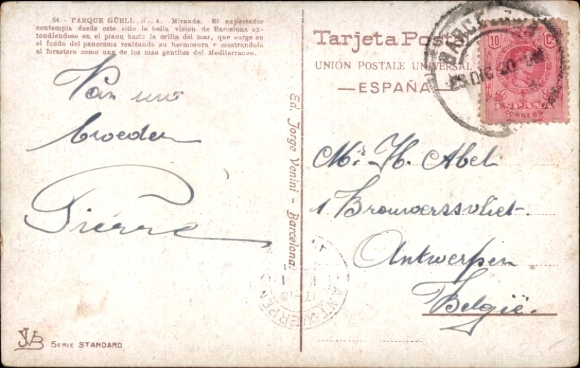 54 - PARQUE GÜELL. N.° 4. Miranda. El espectador
contempla desde este sitio la bella visión de Barcelona ex-
tendiéndose en el plano hasta la orilla del mar, que surge en
el fondo del panorama realzando su hermosura y mostrándola
al forastero como una de las mas gentiles del Mediterráneo.
Van uw
broeder
Pierre
VJB
SERIE STANDARD
Ed. Jorge Venini - Barcelona.
Tarjeta Post
UNIÓN POSTALE UNIVERSAL
ESPAÑA
10
CORREOS
BARCE
ANTWERPEN
Mr. H. Abel
1. Brouwersvliet.
Antwerpen
België.